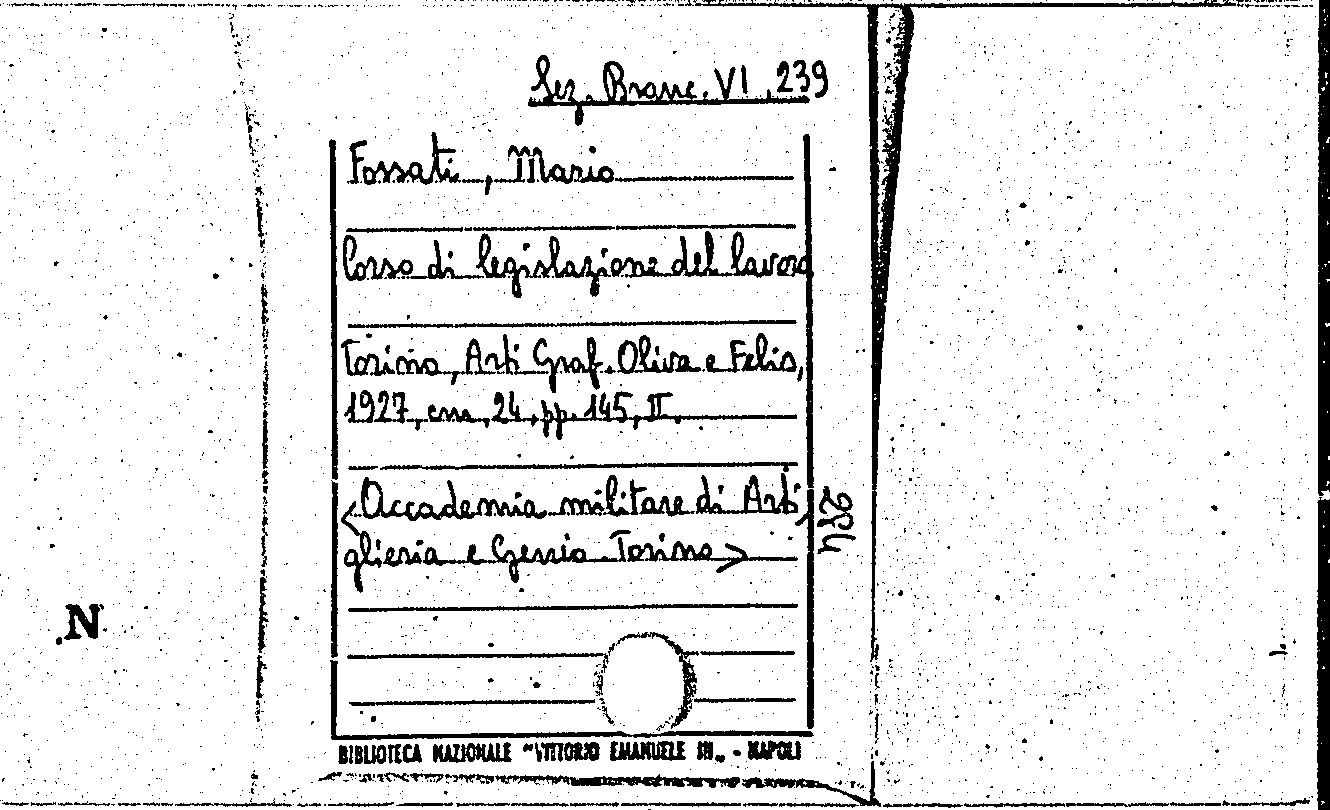 Sez. Branc. VI, 239
Fossati, Mario
Corso di legislazione del lavoro
Torino, Arti Graf. Oliva e Felis,
1927, cm. 24, pp. 145, II.
<Accademia militare di Arti
glieria e Genio. Torino>
N
BIBLIOTECA NAZIONALE "VITTORIO EMANUELE III„ - NAPOLI